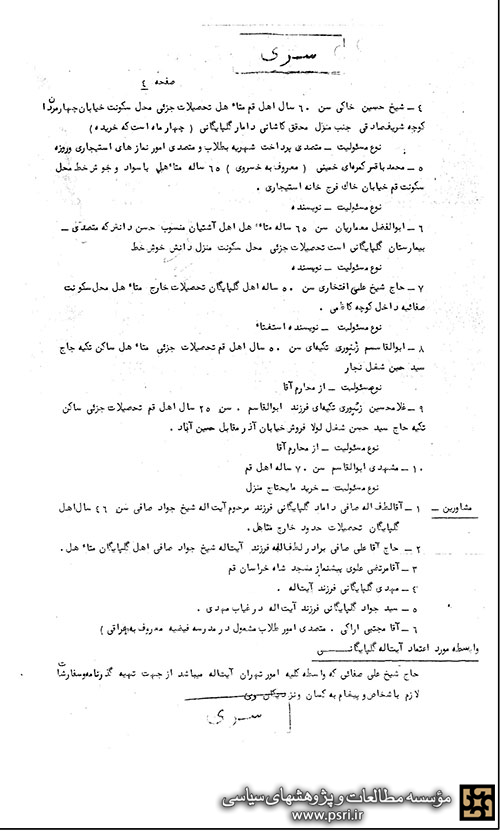 سری
صفحه ٤
٤ – شیخ حسین خاکی سن ٦٠ سال اهل قم متاٴ هل تحصیلات جزئی محل سکونت خیابان چهارمردان
کوچه شریف صادقی جنب منزل محقق کاشانی داماد گلپایگانی ( چهار ماه است که خریده )
نوع مسئولیت – متصدی پرداخت شهریه بطلاب و متصدی امور نماز های استیجاری وروزه
٥ – محمد باقر کمره‌ای خمینی ( معروف به خسروی ) ٦٥ ساله متاٴهل با سواد و خوش خط محل
سکونت قم خیابان خاک فرج خانه استیجاری .
نوع مسئولیت – نویسنده
٦ – ابوالفضل معماریان سن ٦٥ ساله متاٴ هل اهل آشتیان منسوب حسن دانش که متصدی –
بیمارستان گلپایگانی است تحصیلات جزئی محل سکونت منزل دانش خوش خط
نوع مسئولیت – نویسنده
٧ – حاج شیخ علی افتخاری سن ٥٠ ساله اهل گلپایگان تحصیلات خارج متاٴ هل محل سکونت
صفائیه داخل کوچه
نوع مسئولیت – نویسنده استفتاٴ
٨ – ابوالقاسم زنبوری تکیه‌ای سن ٥٠ سال اهل قم تحصیلات جزئی متاٴ هل ساکن تکیه حاج
سید حسن شغل نجار
نوع مسئولیت – از محارم آقا
٩ – غلامحسین زنبوری تکیه‌ای فرزند ابوالقاسم . سن ٢٥ سال اهل قم تحصیلات جزئی ساکن
تکیه حاج سید حسن شغل لولا فروش خیابان آذر مقابل حسین آباد .
نوع مسئولیت – از محارم آقا
١٠ – مشهدی ابوالقاسم سن ٧٠ ساله اهل قم
نوع مسئولیت – خرید مایحتاج منزل
مشاورین – ١ – آقا لطف اله صافی داماد گلپایگانی فرزند مرحوم آیت اله شیخ جواد صافی سن ٤٦ سال اهل
گلپایگان تحصیلات حدود خارج متاهل .
٢ – حاج آقا علی صافی برادر لطف‌اله فرزند آیت‌اله شیخ جواد صافی اهل گلپایگان متاٴ هل .
٣ – آقا مرتضی علوی پیشنماز مسجد شاه خراسان قم
٤ – مهدی گلپایگانی فرزند آیت‌اله .
٥ – سید جواد گلپایگانی فرزند آیت اله در غیاب مهدی .
٦ – آقا مجتبی اراکی . متصدی امور طلاب مشمول در مدرسه فیضیه معروف به عراقی )
واسطه مورد اعتماد آیت‌اله گلپایگانی
حاج شیخ علی صفائی که واسطه کلیه امور تهران آیت‌اله میباشد از جهت تهیه گذرنامه وسفارشات
لازم با شخاص و پیغام به کسان و نزدیکان وی
سری
مؤسسه مطالعات و پژوهشهای سیاسی
www.psri.ir